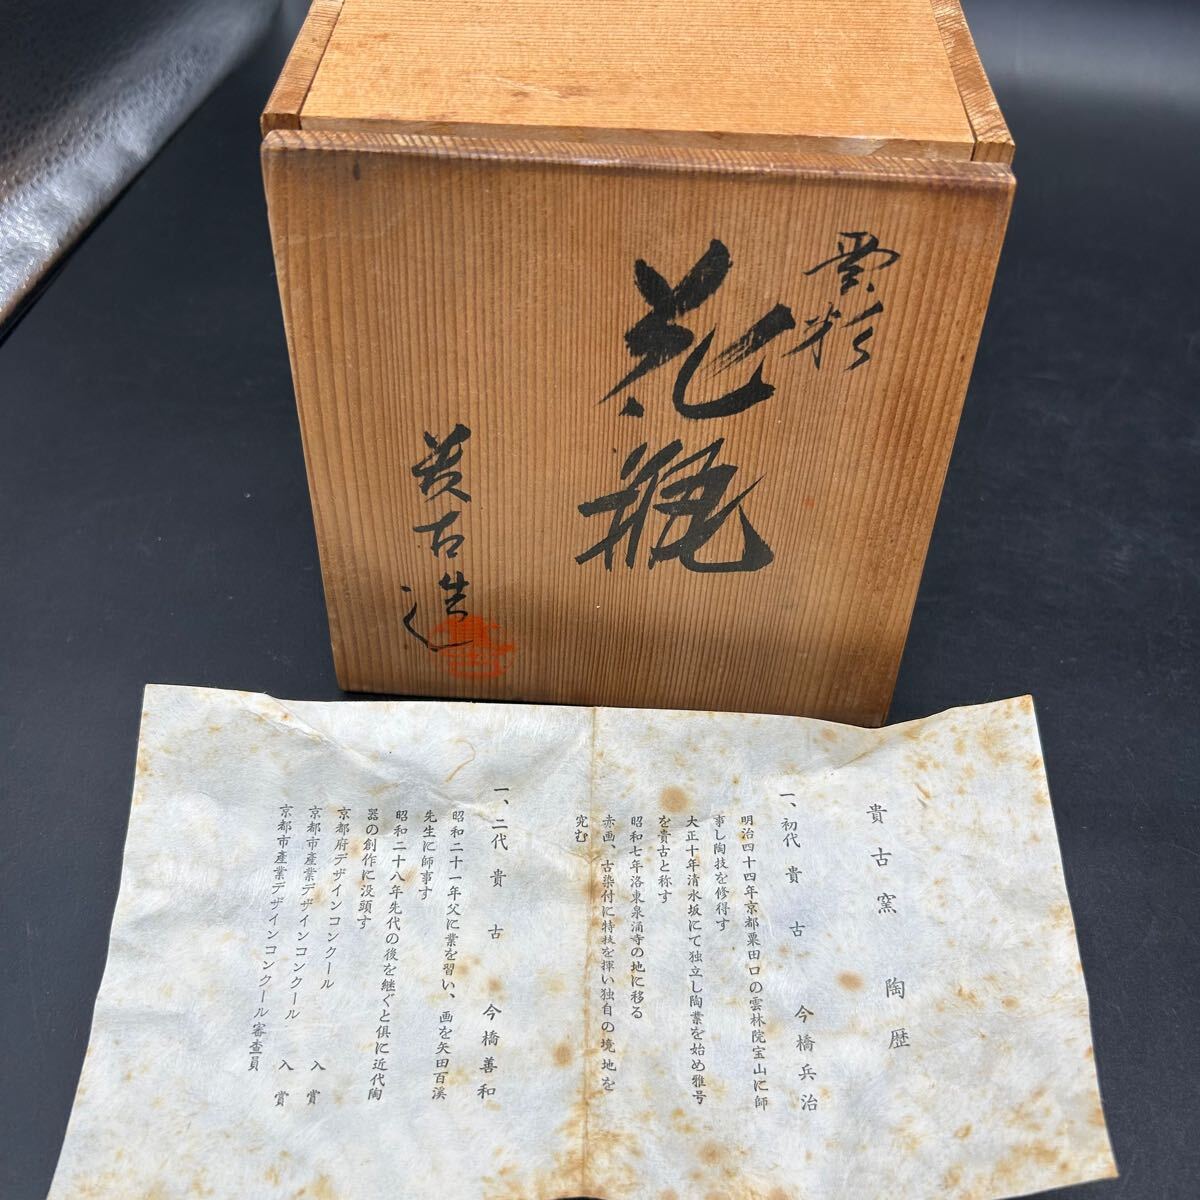 雲彩
花瓶
貴古造
貴古窯 陶歴
一、初代 貴古 今橋兵治
明治四十四年京都粟田口の雲林院宝山に師
事し陶技を修得す
大正十年清水坂にて独立し陶業を始め雅号
を貴古と称す
昭和七年洛東泉涌寺の地に移る
赤画、古染付に特技を揮い独自の境地を
究む
一、二代 貴古 今橋善和
昭和二十一年父に業を習い、画を矢田百溪
先生に師事す
昭和二十八年先代の後を継ぐと倶に近代陶
器の創作に没頭す
京都府デザインコンクール 入賞
京都市産業デザインコンクール 入賞
京都市産業デザインコンクール審査員